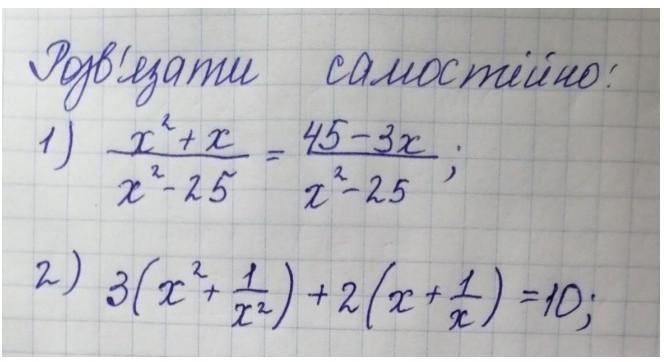 Розв'язати самостійно:
1) (x² + x)/(x² - 25) = (45 - 3x)/(x² - 25);
2) 3(x² + 1/x²) + 2(x + 1/x) = 10;